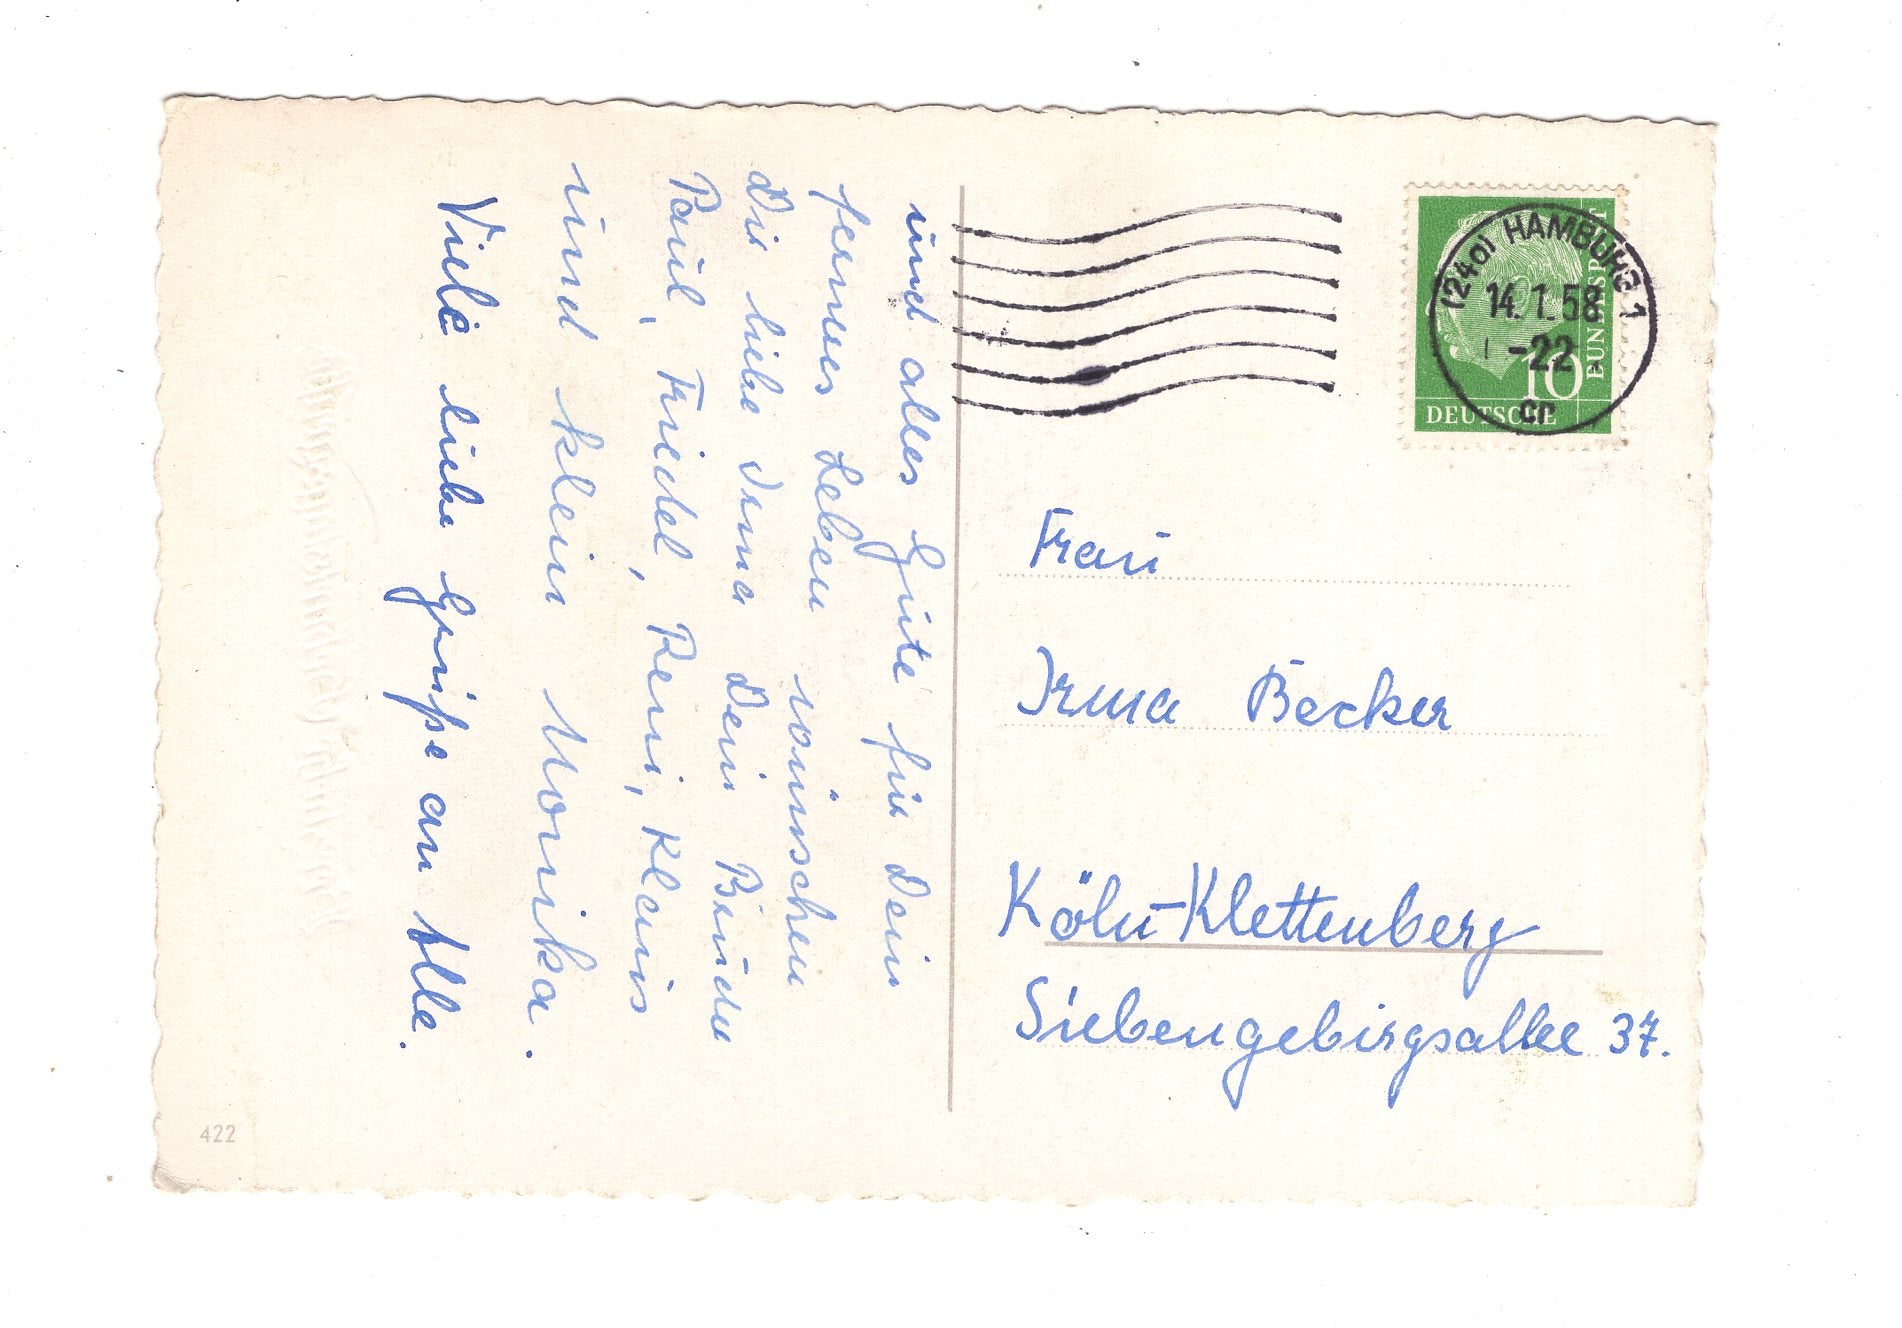 und alles Gute für Dein
ferneres Leben wünschen
Dir liebe Irma Dein Bruder
Paul, Friedel, Reni, Klaus
und klein Monika.
Viele liebe Grüße an Alle.
422
(24a) HAMBURG 1
14.1.58
-22
cp
10
DEUTSCHE
BUNDESPOST
Frau
Irma Becker
Köln-Klettenberg
Siebengebirgsallee 37.